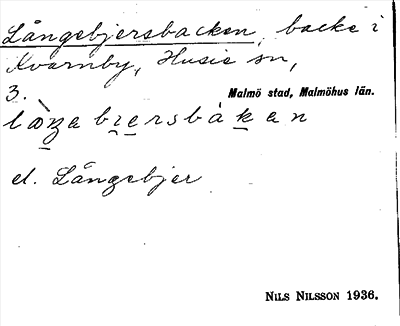 Långebjersbacken, backe i
Kvarnby, Husie sn,
3. Malmö stad, Malmöhus län.
el. Långebjer
NILS NILSSON 1936.